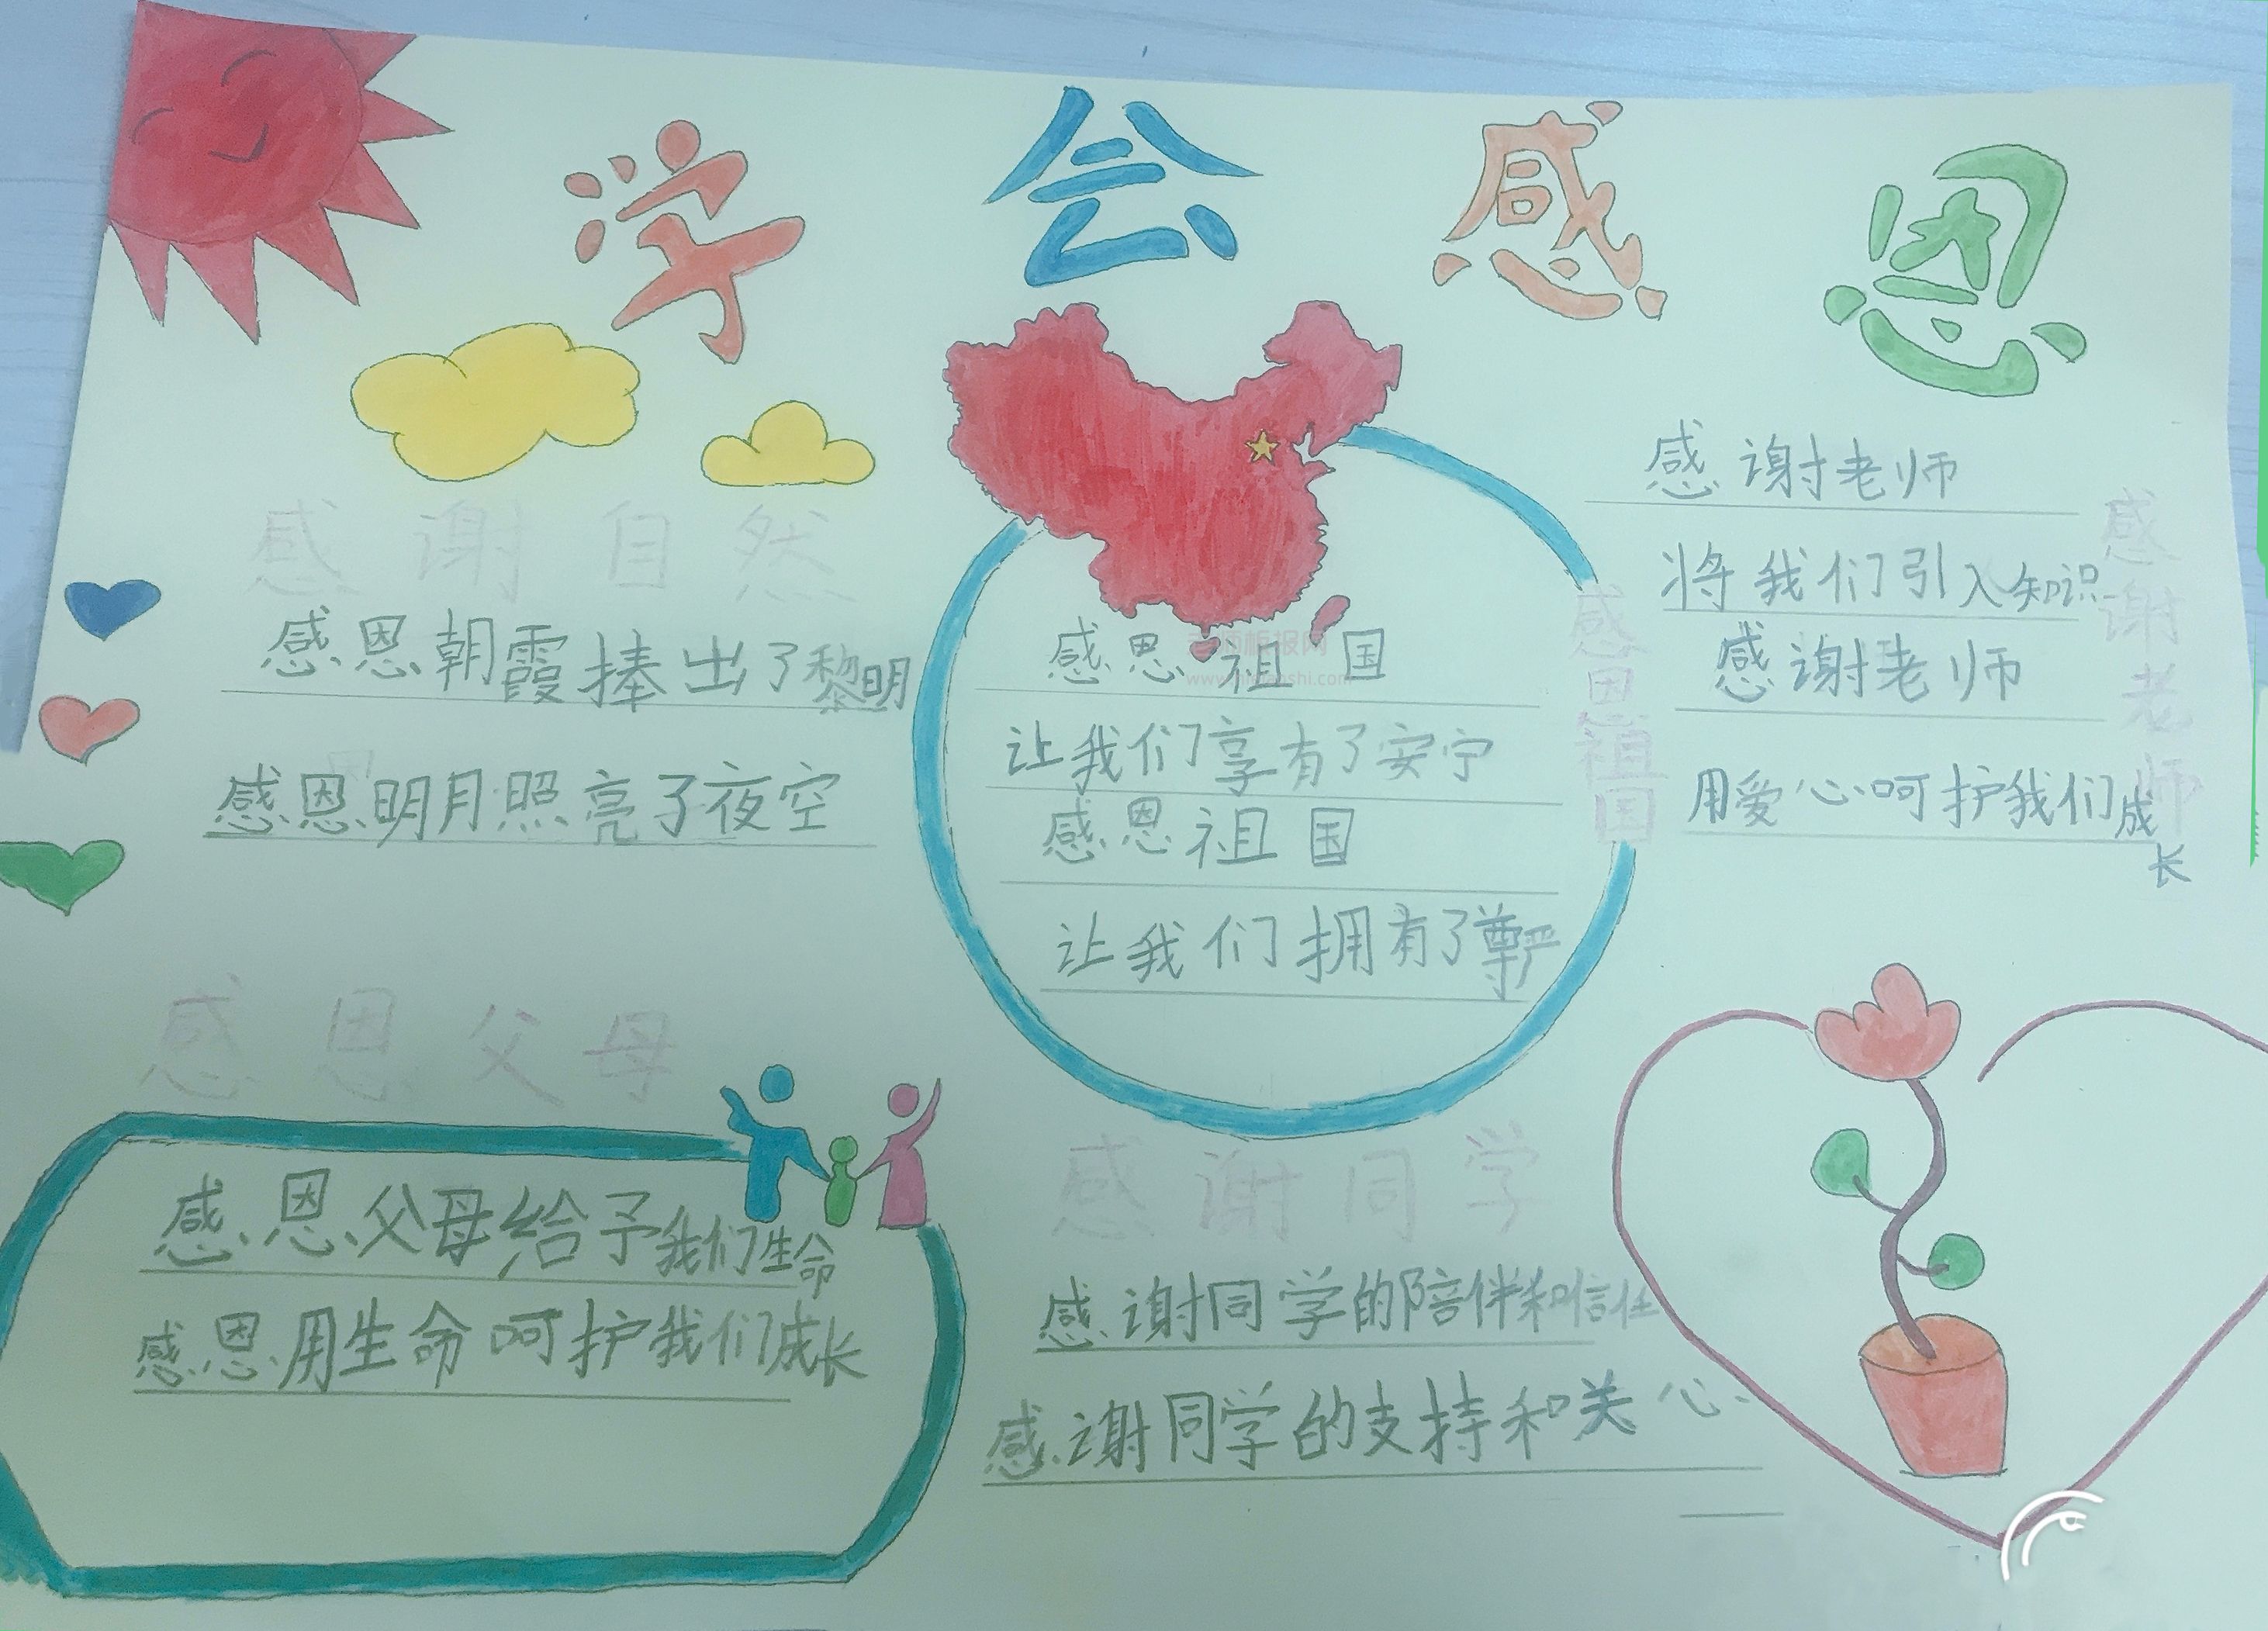 学会感恩
感谢自然
感恩朝霞捧出了黎明
感恩明月照亮了夜空
感恩祖国
让我们享有了安宁
感恩祖国
让我们拥有了尊严
感恩祖国
感谢老师
将我们引入知识
感谢老师
用爱心呵护我们成长
感谢老师
感恩父母
感恩父母给予我们生命
感恩用生命呵护我们成长
感谢同学
感谢同学的陪伴和信任
感谢同学的支持和关心